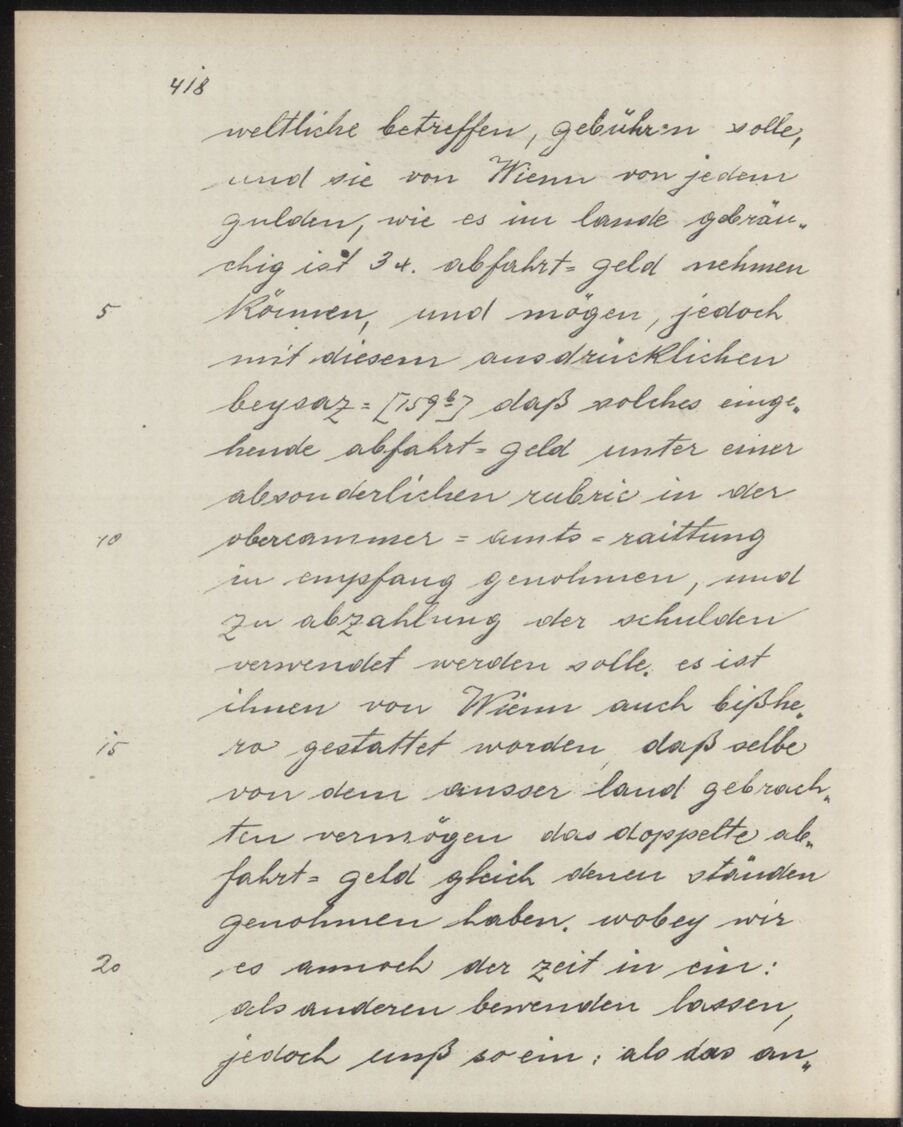 418
weltliche betreffen, gebühren solle,
und sie von Wienn von jedem
gulden, wie es im lande gebräu„
chig ist 3 x. abfahrt= geld nehmen
5 können, und mögen, jedoch
mit diesem ausdrücklichen
beysaz= [159b] daß solches einge„
hende abfahrt= geld unter einer
absonderlichen rubric in der
10 obercammer = amts = raittung
in empfang genohmen, und
zu abzahlung der schulden
verwendet werden solle. es ist
ihnen von Wienn auch bißhe„
15 ro gestattet worden, daß selbe
von dem ausser land gebrach„
ten vermögen das doppelte ab„
fahrt= geld gleich denen ständen
genohmen haben. wobey wir
20 es annoch der zeit in ein:
als anderen bewenden lassen,
jedoch unß so ein: als das an„